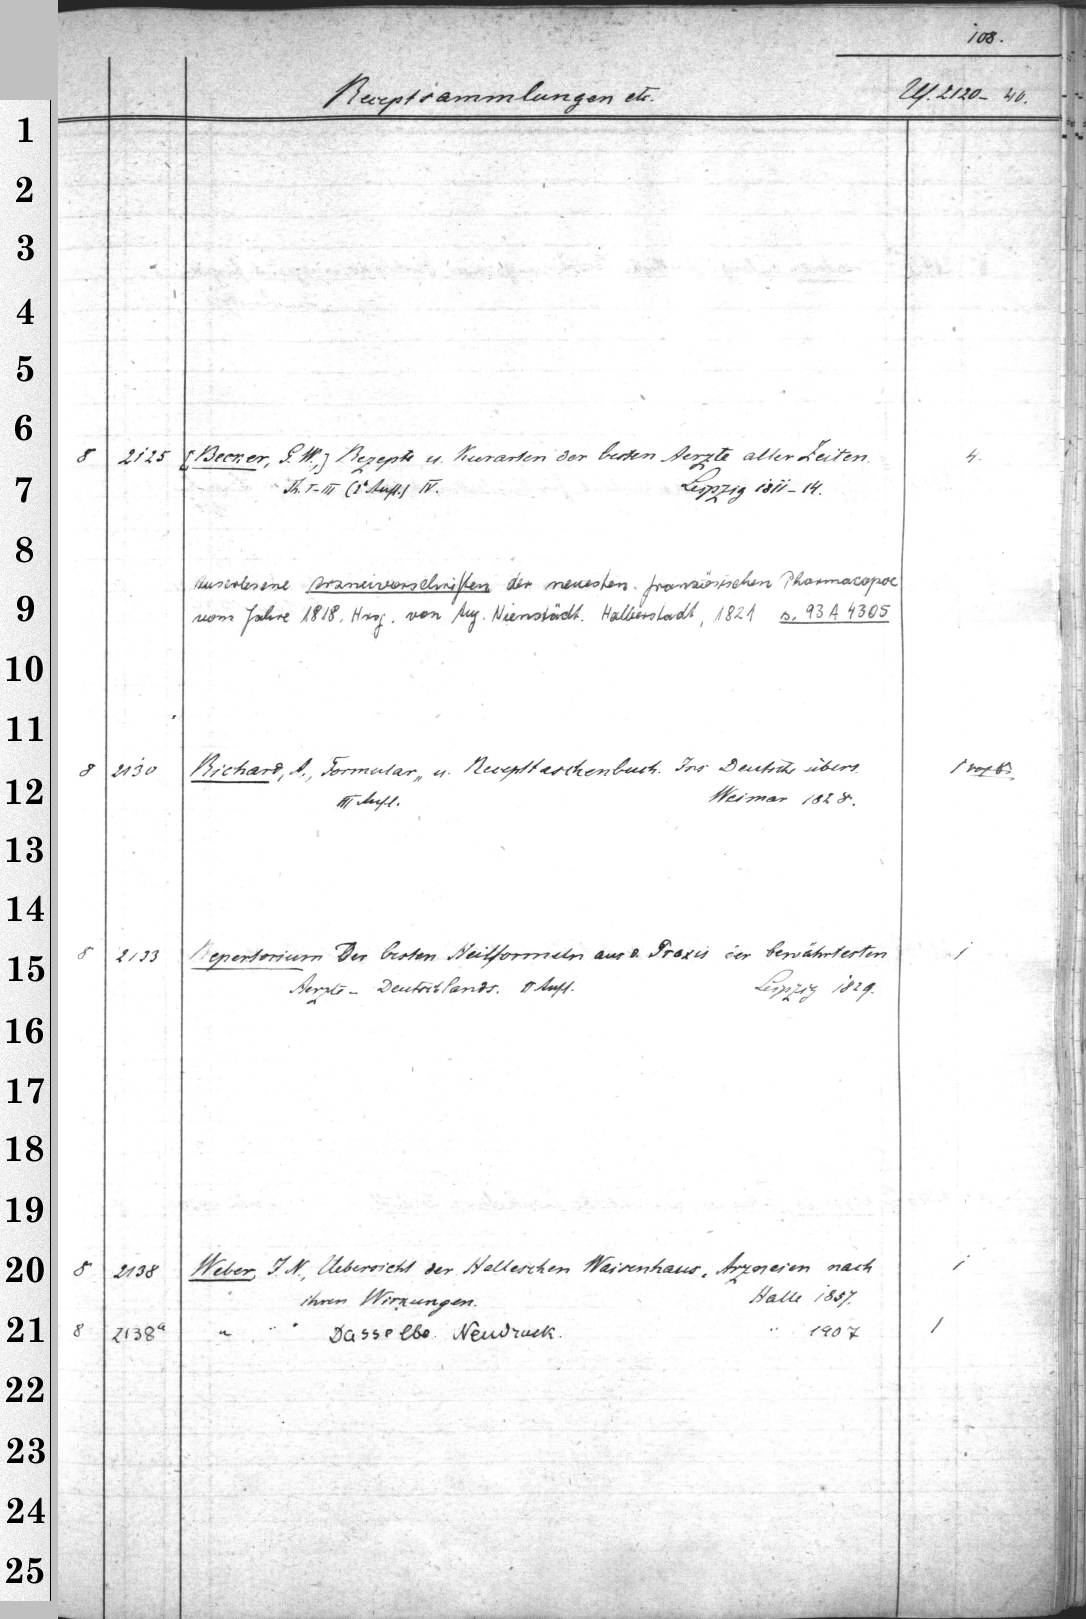 108.
Receptsammlungen etc. Uf. 2120-40.
1
2
3
4
5
6
8 2125 [Becker, G. W.,] Rezepte u. Kurarten der besten Aerzte aller Zeiten. 4.
7
Th. I-III (2te Aufl.) IV. Leipzig 1811-14.
8
Auserlesene Arzneivorschriften der neuesten französischen Pharmacopoe
9
vom Jahre 1818. Hrsg. von Aug. Nienstädt. Halberstadt, 1821 s. 93 A 4305
10
11
8 2130 Richard, A., Formular- u. Recepttaschenbuch. Ins Deutsche übers. 1
12
III Aufl. Weimar 1828.
13
14
8 2133 Repertorium Der besten Heilformeln aus d. Praxis der bewährtesten 1
15
Aerzte Deutschlands. II Aufl. Leipzig 1829.
16
17
18
19
20
8 2138 Weber, F. N., Uebersicht der Halleschen Waisenhaus-Arzneien nach 1
ihren Wirkungen. Halle 1857.
21
8 2138a " " " Dasselbe. Neudruck. " 1907 1
22
23
24
25